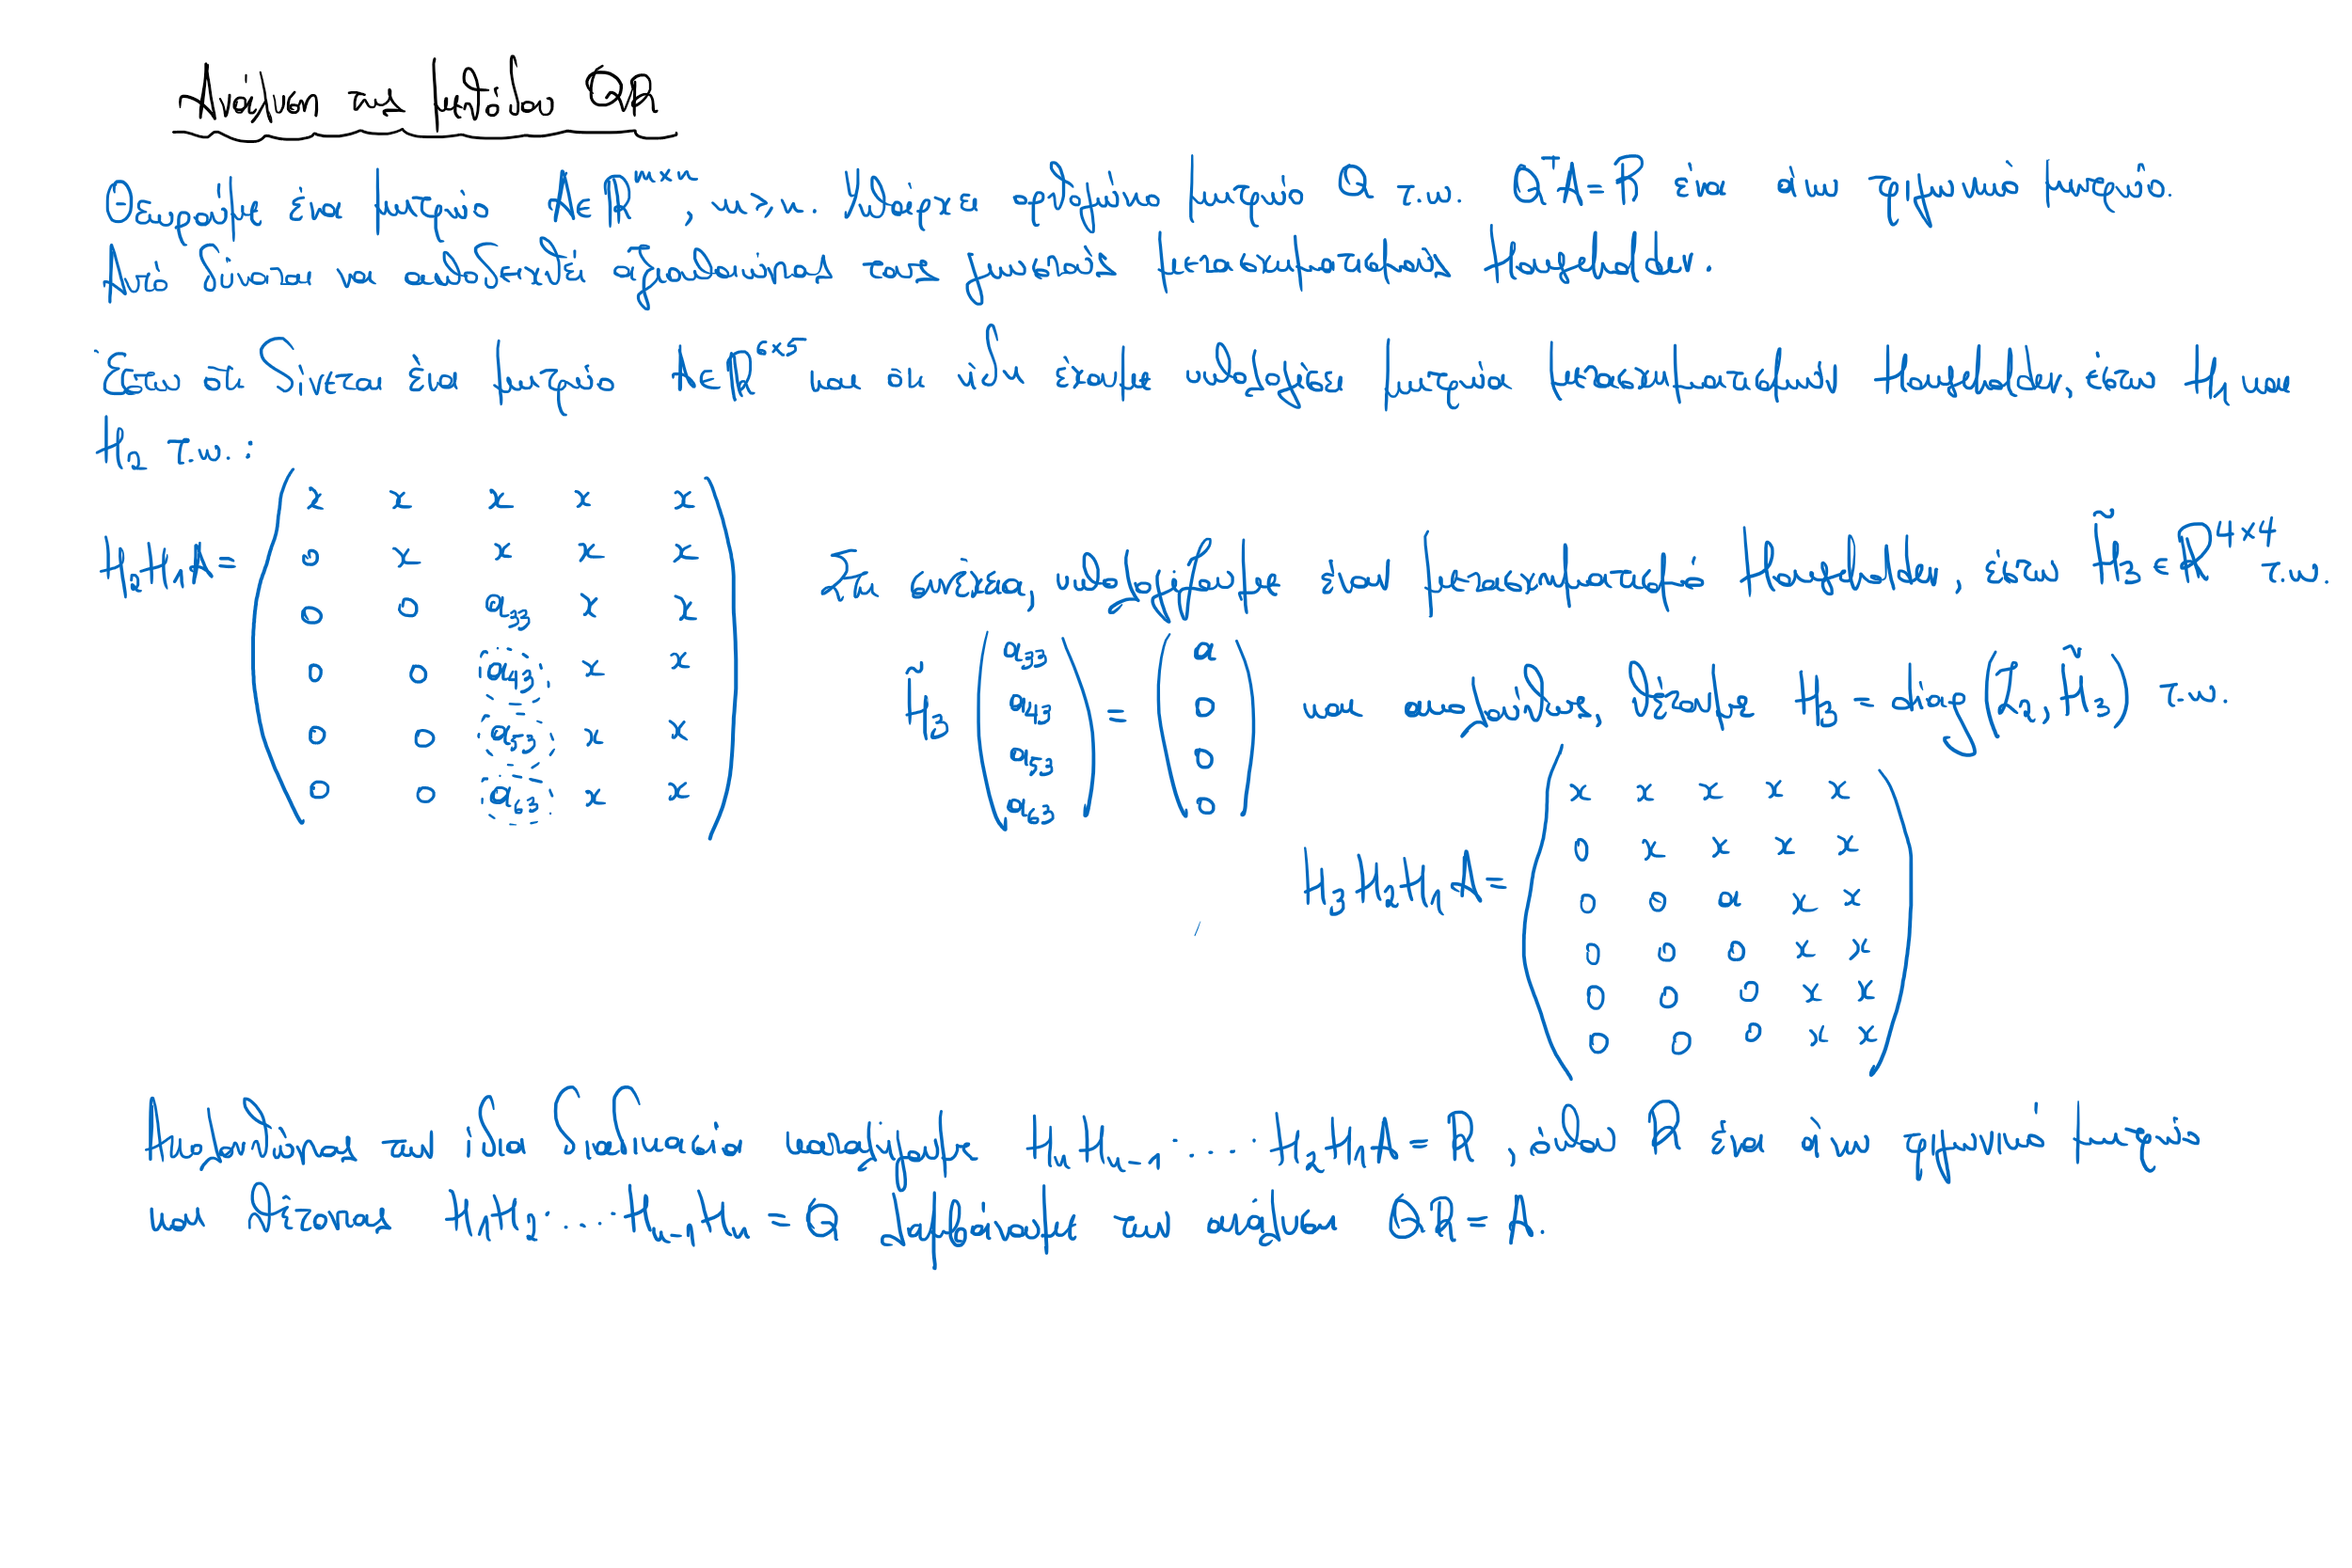 Ανάλυση της μεθόδου QR
Θεωρούμε ένα μητρώο A∈ℝ^{m×n}, m≥n. Υπάρχει ορθογώνιο μητρώο Q τ.ω. Q^T A = R είναι άνω τριγωνικό μητρώο.
Αυτό δύναται να αποδειχθεί αξιοποιώντας τους γνωστούς μετασχηματισμούς Householder.
Έστω ότι δίνεται ένα μητρώο A∈ℝ^{6×5} και ότι ήδη έχουμε υπολογίσει μητρώα μετασχηματισμών Householder, έστω H_1 και
H_2 τ.ω. :
H_2 H_1 A = \begin{pmatrix} x & x & x & x & x \\ 0 & x & x & x & x \\ 0 & 0 & a_{33} & x & x \\ 0 & 0 & a_{43} & x & x \\ 0 & 0 & a_{53} & x & x \\ 0 & 0 & a_{63} & x & x \end{pmatrix}
Στη συνέχεια, υπολογίζουμε έναν μετασχηματισμό Householder, έστω \tilde{H}_3 ∈ ℝ^{4×4} τ.ω.
\tilde{H}_3 \begin{pmatrix} a_{33} \\ a_{43} \\ a_{53} \\ a_{63} \end{pmatrix} = \begin{pmatrix} a \\ 0 \\ 0 \\ 0 \end{pmatrix} και ακολούθως, θέτουμε H_3 = diag(I_2, \tilde{H}_3) τ.ω.
H_3 H_2 H_1 A = \begin{pmatrix} x & x & x & x & x \\ 0 & x & x & x & x \\ 0 & 0 & a & x & x \\ 0 & 0 & 0 & x & x \\ 0 & 0 & 0 & x & x \\ 0 & 0 & 0 & x & x \end{pmatrix}
Ακολουθώντας την ίδια διαδικασία καταλήγουμε H_n H_{n-1} ..... H_2 H_1 A = R , όπου R είναι άνω τριγωνικό μητρώο
και θέτοντας H_1 H_2 ..... H_{n-1} H_n = Q λαμβάνουμε την ανάλυση QR = A.